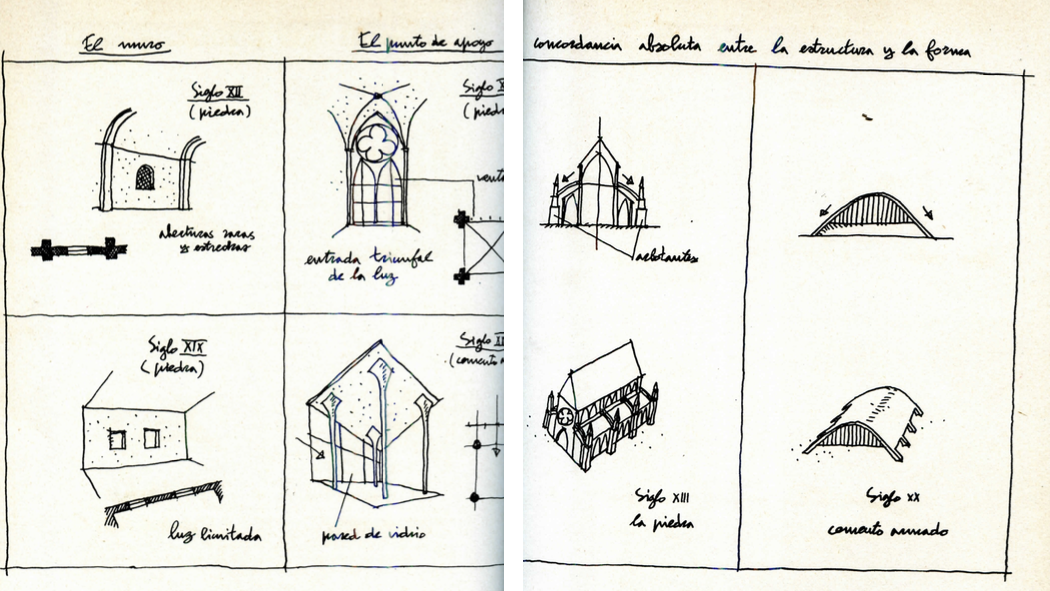 El muro
El punto de apoyo
Siglo XII
(piedra)
aberturas raras
y estrechas
Siglo
entrada triunfal
de la luz
Siglo XIX
(piedra)
luz limitada
Siglo
pared de vidrio
concordancia absoluta entre la estructura y la forma
arbotantes
Siglo XIII
la piedra
Siglo XX
cemento armado